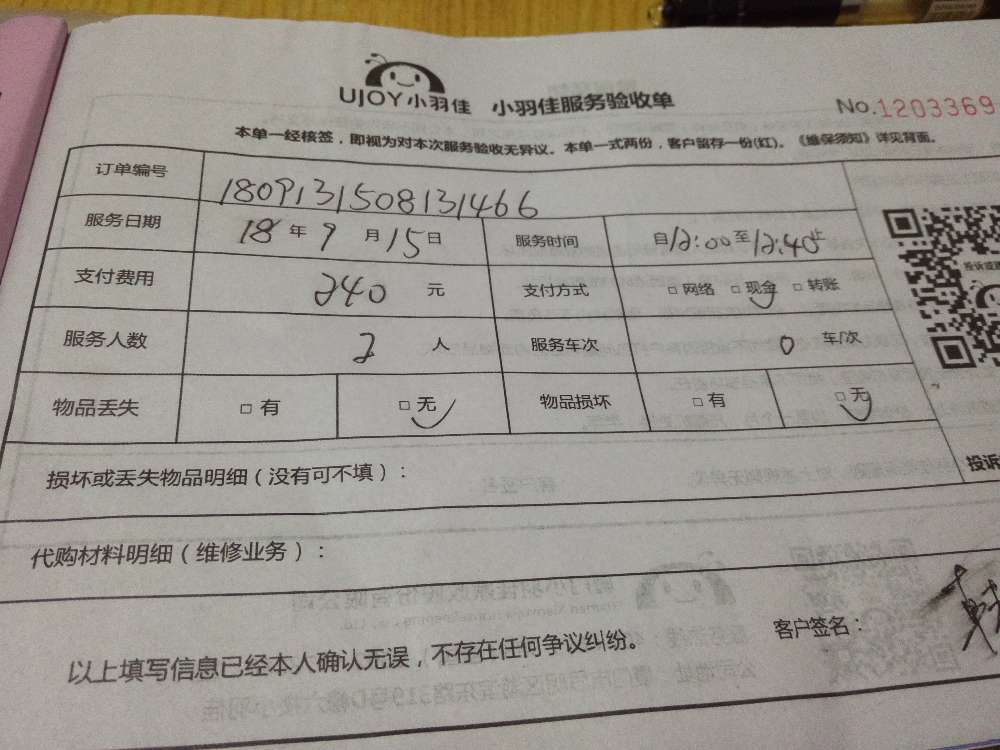 UJOY小羽佳 小羽佳服务验收单 No.1203369
本单一经核签，即视为对本次服务验收无异议。本单一式两份，客户留存一份(红)。《维保须知》详见背面。
订单编号 1809131508131466
服务日期 18年9月15日 服务时间 自12:00至12:40止
支付费用 240元 支付方式 □网络 □现金 □转账
服务人数 2人 服务车次 0车/次
物品丢失 □有 □无 物品损坏 □有 □无
损坏或丢失物品明细（没有可不填）：
投诉
代购材料明细（维修业务）：
以上填写信息已经本人确认无误，不存在任何争议纠纷。 客户签名：